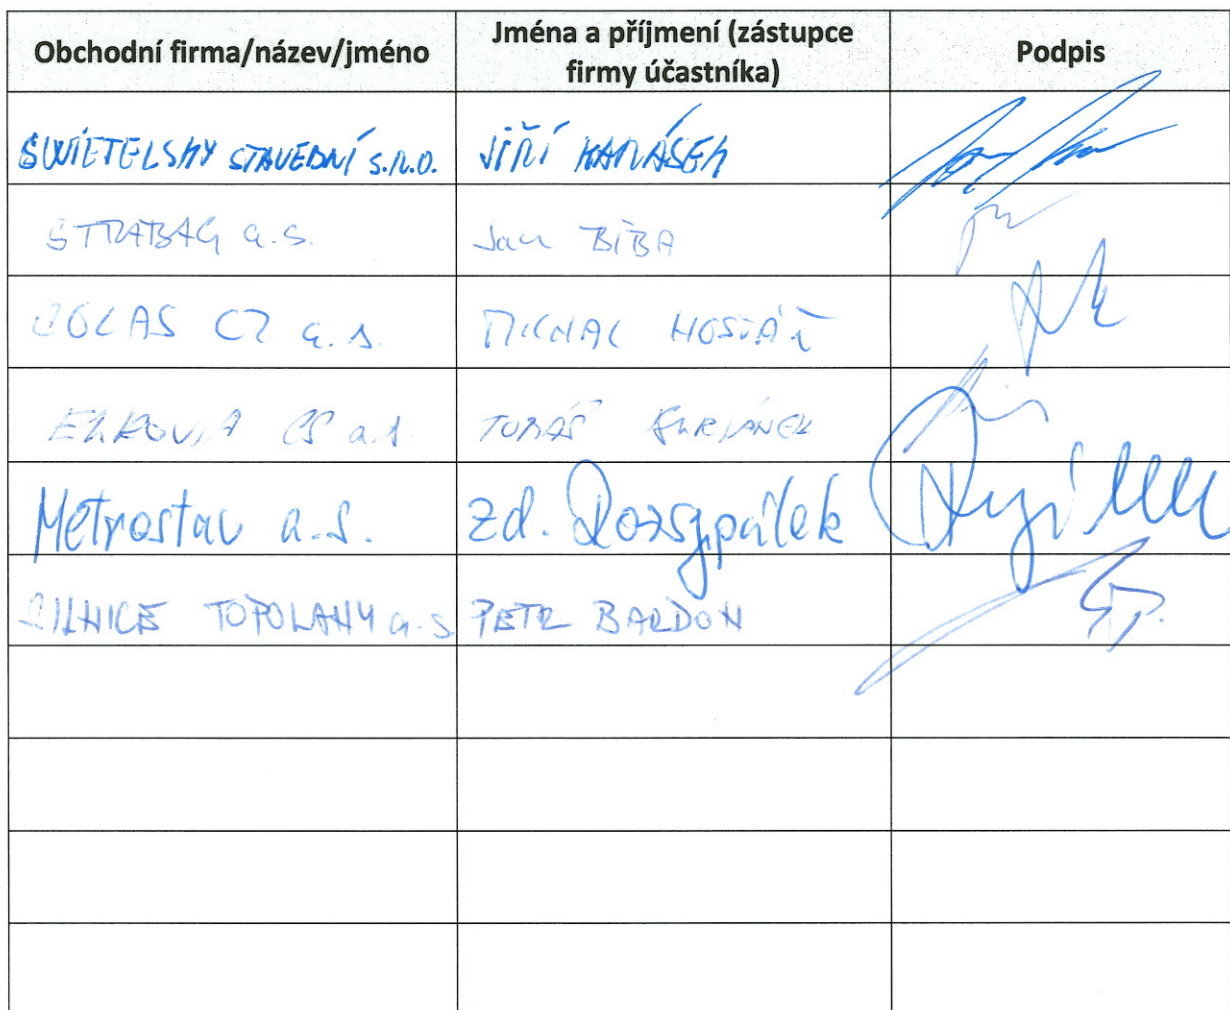 Obchodní firma/název/jméno
Jména a příjmení (zástupce
firmy účastníka)
Podpis
SWIETELSKY STAVEBNÍ s.r.o. JIŘÍ KARÁSEK
STRABAG a.s. Jan BÍBA
COLAS CZ a.s. MICHAL
a.s. TOMÁŠ
Metrostav a.s. Zd. Rozsypálek
SILNICE TOPOLANY a.s PETR BARDON